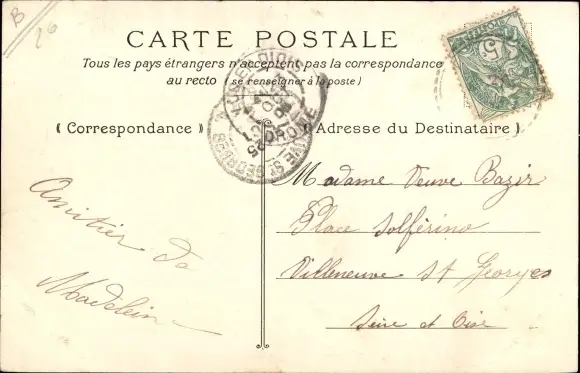 B
26
CARTE POSTALE
Tous les pays étrangers n'acceptent pas la correspondance
au recto (se renseigner à la poste)
5
(Correspondance)
Amitier de
Madelein
Adresse du Destinataire)
Madame Veuve Bazir
Place Solférino
Villeneuve St Georges
Seine et Oise